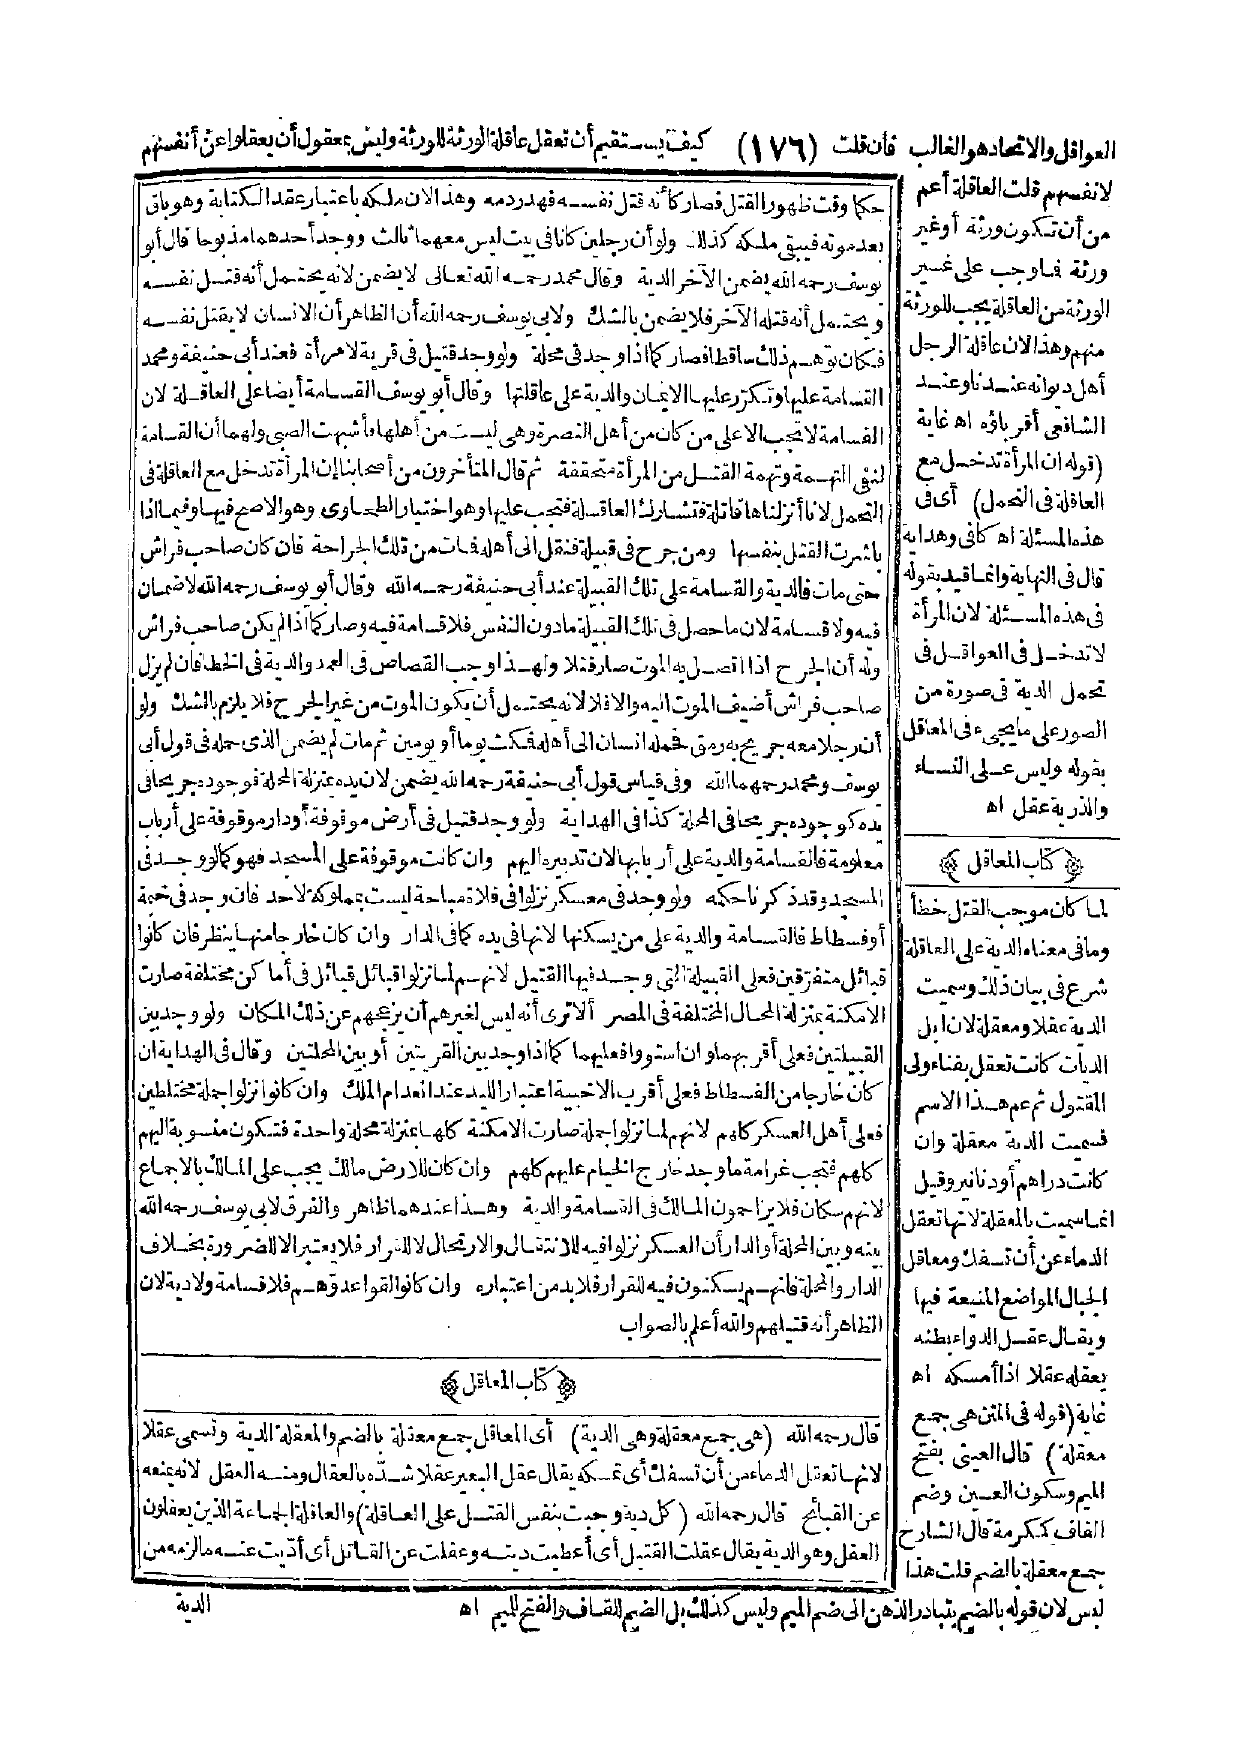 العواقل والاتحاد هو الغالب فان قلت (١٧٦) كيف يستقيم أن تعقل عاقلة الورثة للورثة وليس بمعقول أن يعقلوا عن أنفسهم
لانفسهم قلت العاقلة أعم
من أن تكون ورثة أو غير
ورثة فما وجب على غير
الورثة من العاقلة يجب للورثة
منهم وهذا لان عاقلة الرجل
أهل ديوانه عندنا وعند
الشافعى أقرباؤه اه غاية
(قوله ان المرأة تدخل مع
العاقلة فى التحمل) أى فى
هذه المسئلة اه كافى وهداية
قال فى النهاية وانما قيد بقوله
فى هذه المسئلة لان المرأة
لا تدخل فى العواقل فى
تحمل الدية فى صورة من
الصور على ما يجىء فى المعاقل
بقوله وليس على النساء
والذرية عقل اه
﴿كتاب المعاقل﴾
لما كان موجب القتل خطأ
وما فى معناه الدية على العاقلة
شرع فى بيان ذلك وسميت
الدية عقلا ومعقلة لان ابل
الديات كانت تعقل بفناء ولى
المقتول ثم عم هذا الاسم
فسميت الدية معقلة وان
كانت دراهم أو دنانير وقيل
انما سميت بالمعقلة لانها تعقل
الدماء عن أن تسفك ومعاقل
الجبال المواضع المنيعة فيها
ويقال عقل الدواء بطنه
يعقله عقلا اذا أمسكه اه
غاية (قوله فى المتن هى جمع
معقلة) قال العينى بفتح
الميم وسكون العين وضم
القاف ككرمة قال الشارح
جمع معقلة بالضم قلت هذا
ليس لان قوله بالضم يتبادر الذهن الى ضم الميم وليس كذلك بل الضم للقاف والفتح للميم اه
حكما وقت ظهور القتل فصار كأنه قتل نفسه فهدر دمه وهذا الان ملكه باعتبار عقد الكتابة وهو باق
بعد موته فيبقى ملكه كذلك ولو أن رجلين كانا فى بيت ليس معهما ثالث ووجد أحدهما مذبوحا قال أبو
يوسف رحمه الله يضمن الآخر الدية وقال محمد رحمه الله تعالى لا يضمن لانه يحتمل أنه قتل نفسه
ويحتمل أنه قتله الآخر فلا يضمن بالشك ولابى يوسف رحمه الله أن الظاهر أن الانسان لا يقتل نفسه
فكان توهم ذلك ساقطا فصار كما اذا وجد فى محلة ولو وجد قتيل فى قرية لامرأة فعند أبى حنيفة ومحمد
القسامة عليها وتكرر عليها الايمان والدية على عاقلتها وقال أبو يوسف القسامة أيضا على العاقلة لان
القسامة لا تجب الا على من كان من أهل النصرة وهى ليست من أهلها فأشبهت الصبى ولهما أن القسامة
لنفى التهمة وتهمة القتل من المرأة متحققة ثم قال المتأخرون من أصحابنا إن المرأة تدخل مع العاقلة فى
التحمل لانا أنزلناها قاتلة فتشارك العاقلة فتجب عليها وهو اختيار الطحاوى وهو الاصح فيها وفيما اذا
باشرت القتل بنفسها ومن جرح فى قبيلة فنقل الى أهله فمات من تلك الجراحة فان كان صاحب فراش
حتى مات فالدية والقسامة على تلك القبيلة عند أبى حنيفة رحمه الله وقال أبو يوسف رحمه الله لا ضمان
فيه ولا قسامة لان ما حصل فى تلك القبيلة مادون النفس فلا قسامة فيه وصار كما اذا لم يكن صاحب فراش
وله أن الجرح اذا اتصل به الموت صار قتلا ولهذا وجب القصاص فى العمد والدية فى الخطا فان لم يزل
صاحب فراش أضيف الموت اليه والا فلا لانه يحتمل أن يكون الموت من غير الجرح فلا يلزم بالشك ولو
أن رجلا معه جريح به رمق فحمله انسان الى أهله فمكث يوما أو يومين ثم مات لم يضمن الذى حمله فى قول أبى
يوسف ومحمد رحمهما الله وفى قياس قول أبى حنيفة رحمه الله يضمن لان يده بمنزلة المحلة فوجوده جريحا فى
يده كوجوده جريحا فى المحلة كذا فى الهداية ولو وجد قتيل فى أرض موقوفة أو دار موقوفة على أرباب
معلومة فالقسامة والدية على أربابها لان تدبيره اليهم وان كانت موقوفة على المسجد فهو كما لو وجد فى
المسجد وقد ذكرنا حكمه ولو وجد فى معسكر نزلوا فى فلاة مباحة ليست بمملوكة لاحد فان وجد فى خيمة
أو فسطاط فالقسامة والدية على من يسكنها لانها فى يده كما فى الدار وان كان خارجا منها ينظر فان كانوا
قبائل متفرقين فعلى القبيلة التى وجد فيها القتيل لانهم لما نزلوا قبائل قبائل فى أماكن مختلفة صارت
الامكنة بمنزلة المحال المختلفة فى المصر ألا ترى أنه ليس لغيرهم أن يزعجهم عن ذلك المكان ولو وجد بين
القبيلتين فعلى أقربهما وان استووا فعليهما كما اذا وجد بين القريتين أو بين المحلتين وقال فى الهداية ان
كان خارجا من الفسطاط فعلى أقرب الاخبية اعتبارا لليد عند انعدام الملك وان كانوا نزلوا جملة مختلطين
فعلى أهل العسكر كلهم لانهم لما نزلوا جملة صارت الامكنة كلها بمنزلة محلة واحدة فتكون منسوبة اليهم
كلهم فتجب غرامة ما وجد خارج الخيام عليهم كلهم وان كان للارض مالك يجب على المالك بالاجماع
لانهم سكان فلا يزاحمون المالك فى القسامة والدية وهذا عندهما ظاهر والفرق لابى يوسف رحمه الله
بينه وبين المحلة أو الدار أن العسكر نزلوا فيه للانتقال والارتحال لا للقرار فلا يعتبر الا للضرورة بخلاف
الدار والمحلة فانهم يسكنون فيه للقرار فلا بد من اعتباره وان كانوا لقوا عدوهم فلا قسامة ولا دية لان
الظاهر أنه قتيلهم والله أعلم بالصواب
﴿كتاب المعاقل﴾
قال رحمه الله (هى جمع معقلة وهى الدية) أى المعاقل جمع معقلة بالضم والمعقلة الدية وتسمى عقلا
لانها تعقل الدماء من أن تسفك أى تمسكه يقال عقل البعير عقلا شده بالعقال ومنه العقل لانه يمنعه
عن القبائح قال رحمه الله (كل دية وجبت بنفس القتل على العاقلة) والعاقلة الجماعة الذين يعقلون
العقل وهو الدية يقال عقلت القتيل أى أعطيت ديته وعقلت عن القاتل أى أديت عنه ما لزمه من
الدية